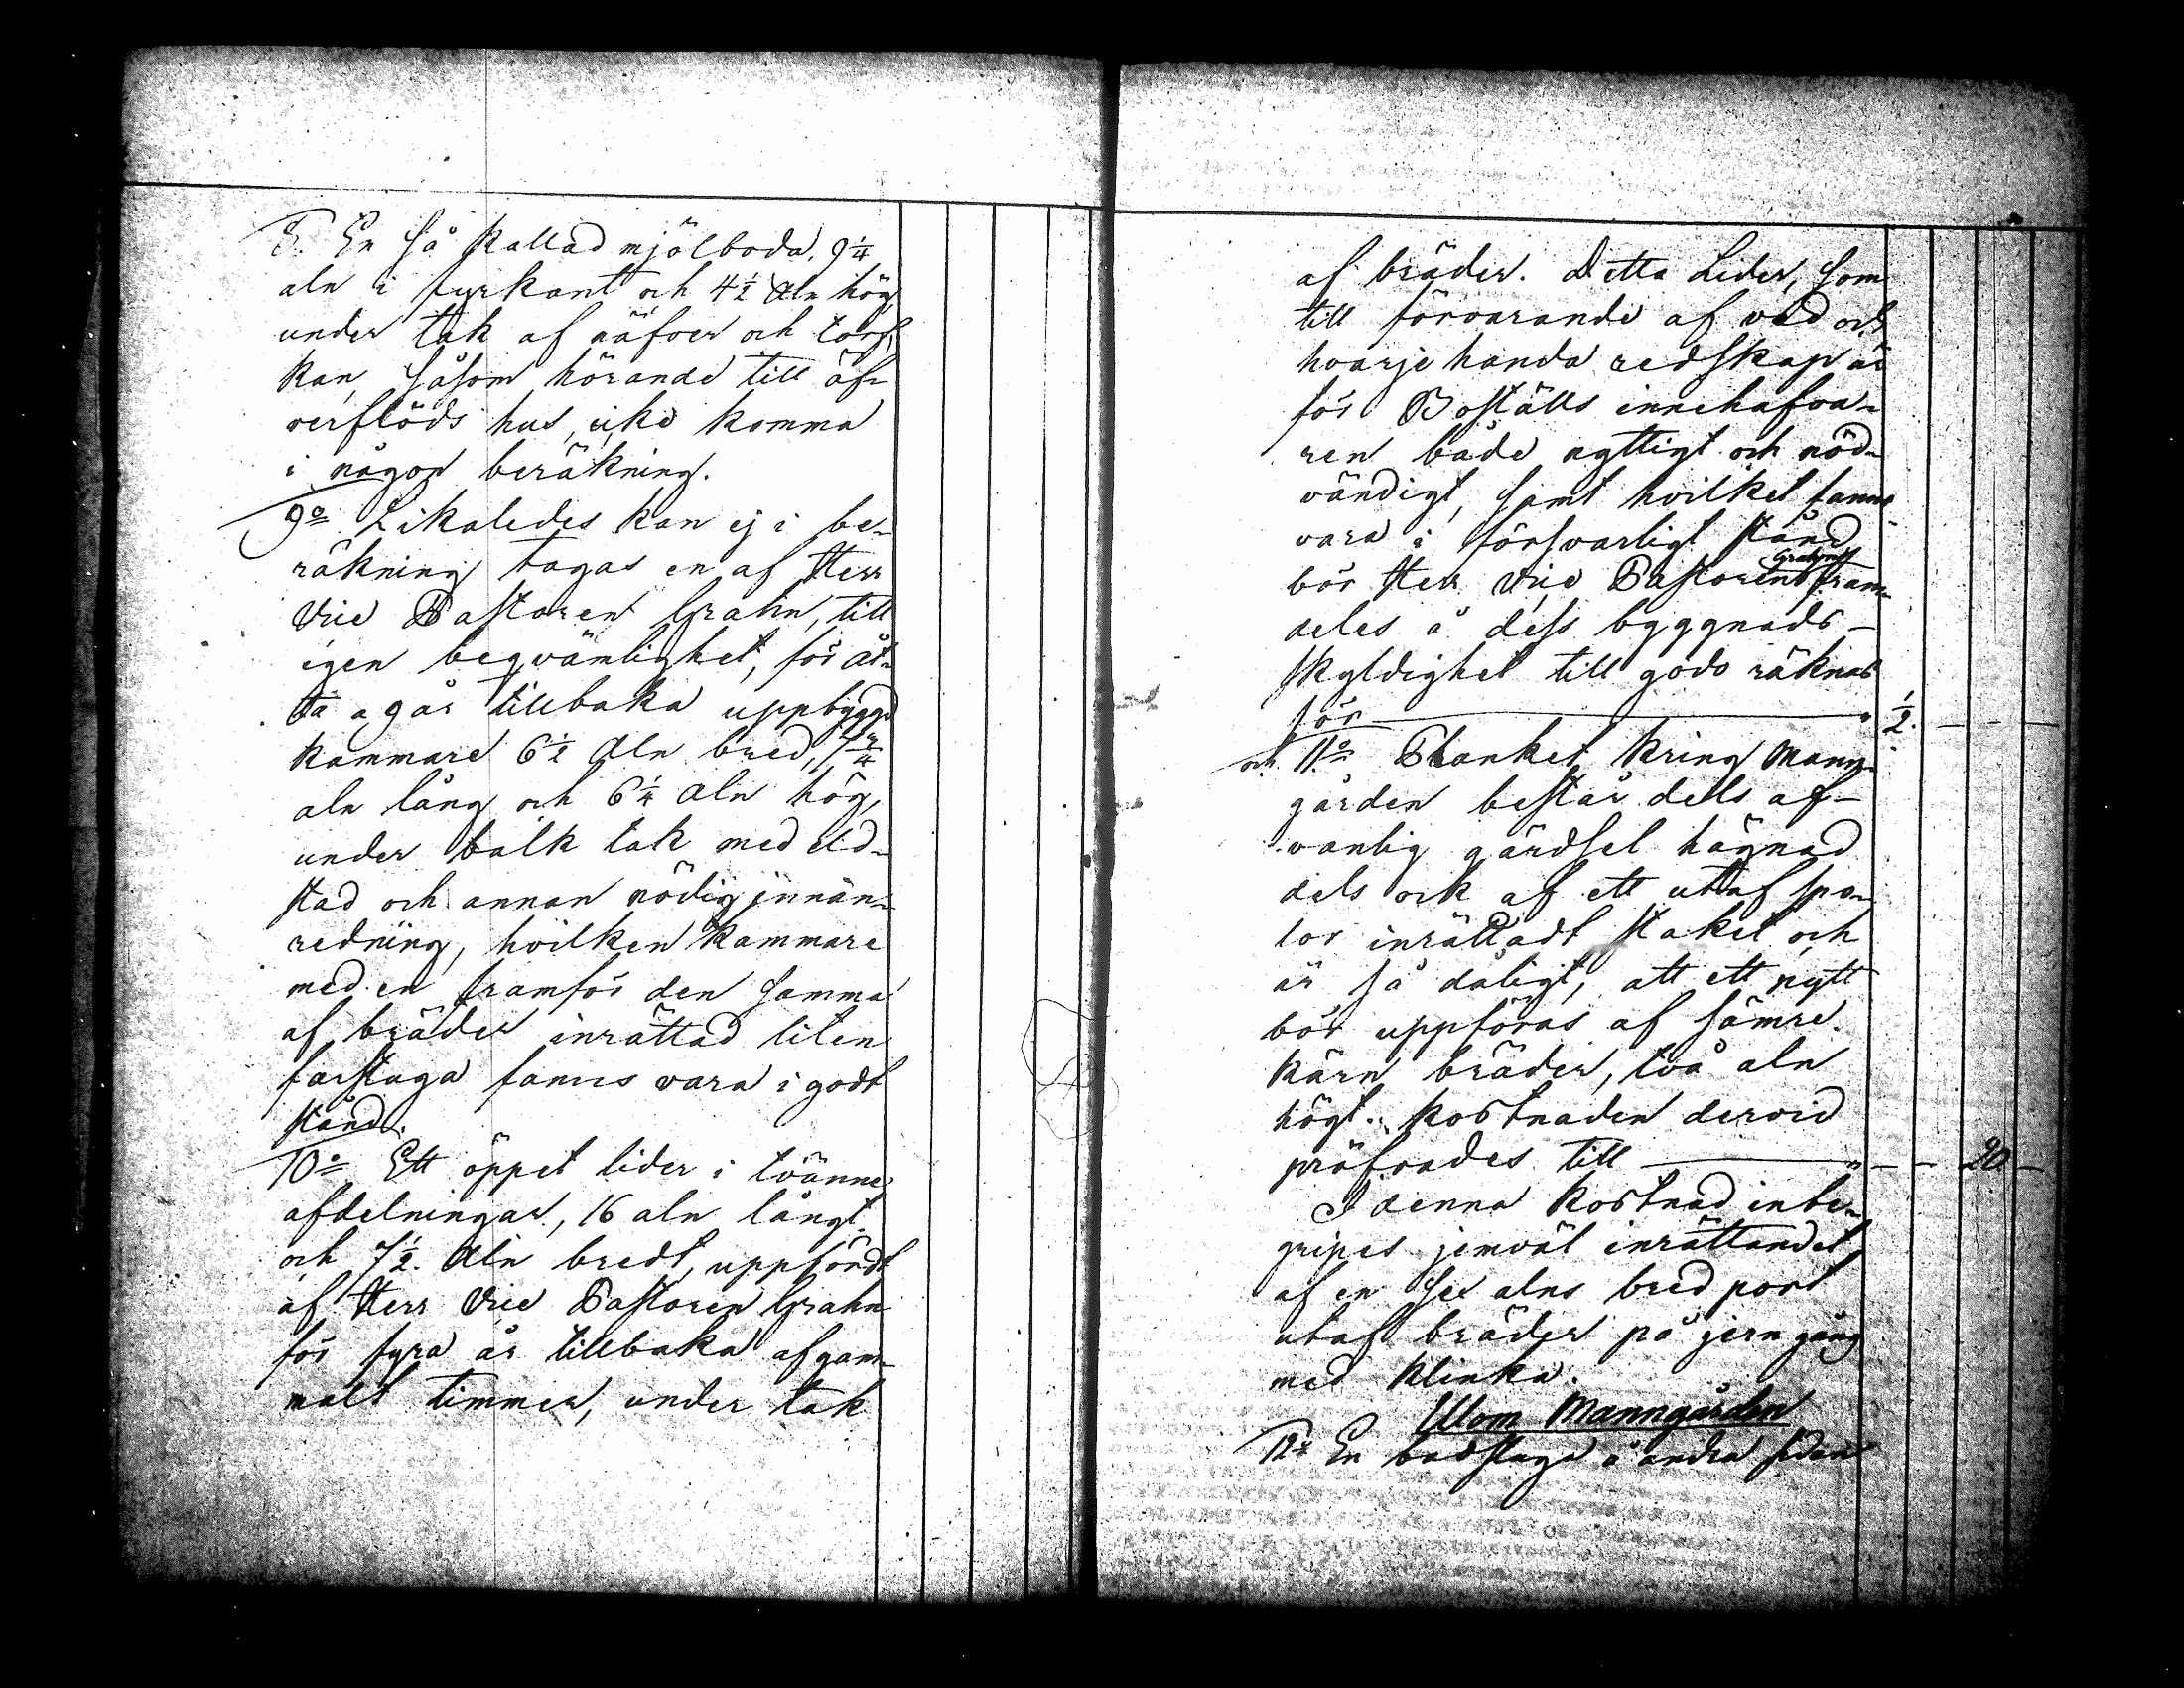 8. En så kallad mjölboda, 9 1/4
aln i fyrkant och 4 1/2 Aln hög
under tak af näfver och torf,
kan, såsom hörande till öf-
verflöds hus, icke komma
i någon beräkning.
9o Likaledes kan ej i be-
räkning tagas en af Herr
Vice Pastoren Grahn, till
egen beqvämlighet, för åt-
ta a 9 år tillbaka uppbyggd
kammare 6 1/2 Aln bred, 7 3/4
aln lång och 6 1/4 Aln hög,
under balk tak med eld-
stad och annan nödig innän-
redning, hvilken kammare
med en framför den samma
af bräder inrättad liten
farstuga fanns vara i godt
stånd.
10o Ett öppet lider i tvänne
afdelningar, 16 aln långt
och 7 1/2 Aln bredt, uppfördt
af Herr Vice Pastoren Grahn
för fyra år tillbaka af gam-
malt timmer, under tak
af bräder. Detta Lider, som
till förvarande af ved och
hvarje handa redskap är
för Boställs innehafva-
ren både nyttigt och nöd-
vändigt, samt hvilket fanns
vara i försvarligt stånd
bör Herr Vice Pastoren Grahn fram-
deles å dess byggnads-
skyldighet till godo räknas
för " 1/2. — —
och 11o Planket kring Mann-
gården består dels af
vanlig gärdsel hägnad
dels ock af ett utaf spo-
lor inrättadt staket och
är så dåligt, att ett nytt
bör uppföras af sämre
kärn bräder, två aln
högt. Kostnaden dervid
pröfvades till " — — 20 —
I denna kostnad inbe-
gripes jemväl inrättandet
af en sex alns bred port
utaf bräder på jern gång
med klinka.
Utom Manngården
12o En badstuga å andra sidan